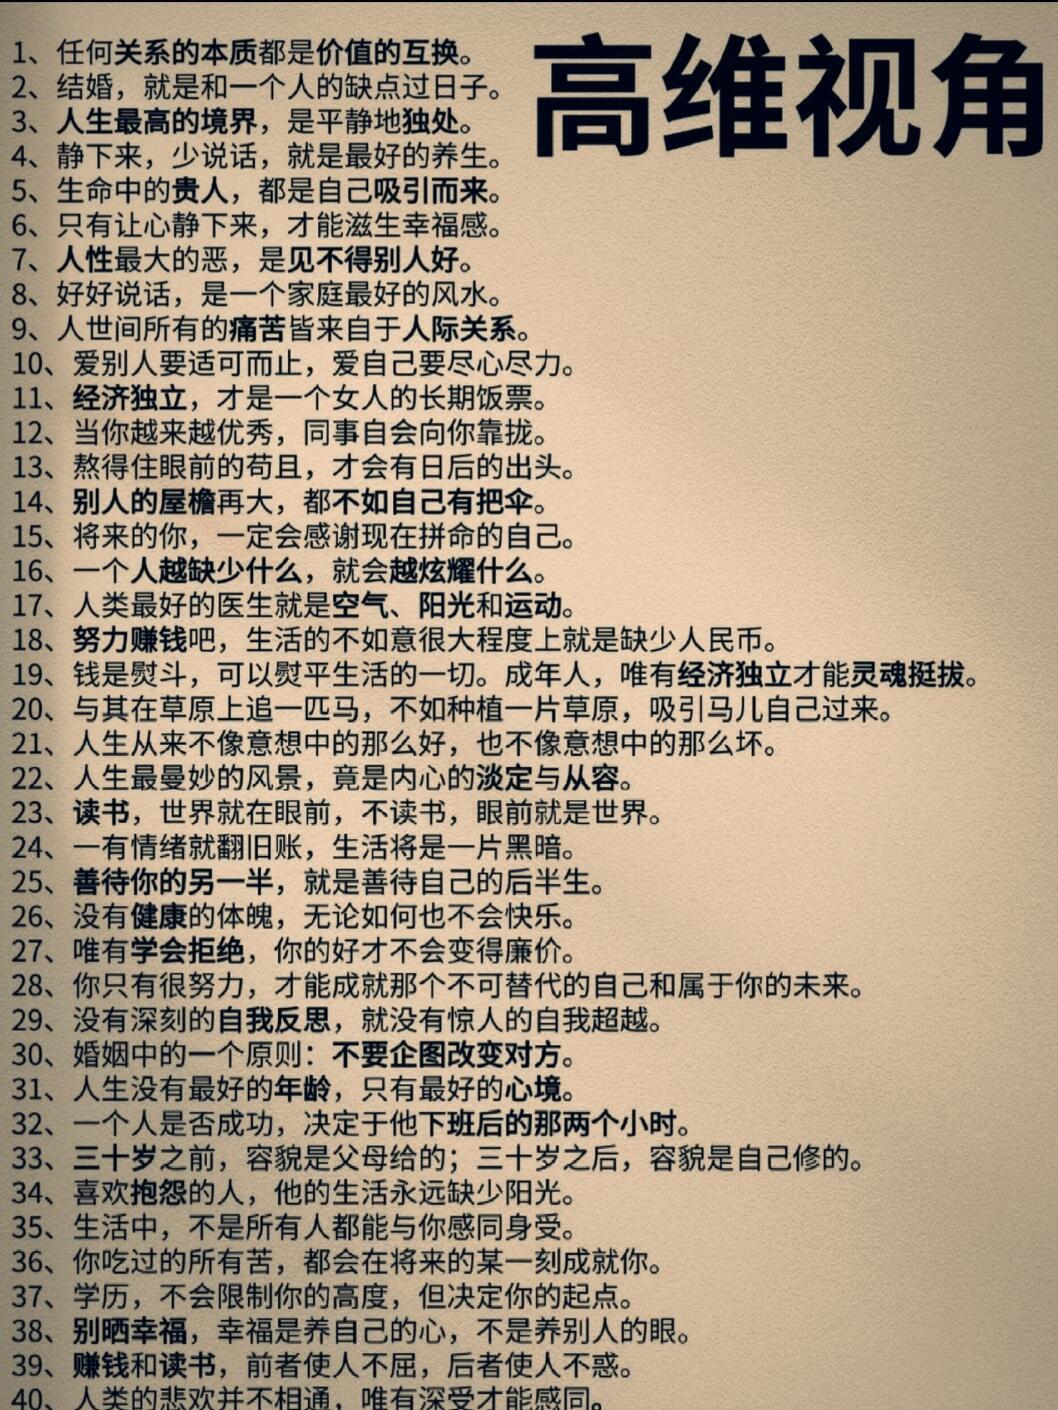 高维视角
1、任何关系的本质都是价值的互换。
2、结婚，就是和一个人的缺点过日子。
3、人生最高的境界，是平静地独处。
4、静下来，少说话，就是最好的养生。
5、生命中的贵人，都是自己吸引而来。
6、只有让心静下来，才能滋生幸福感。
7、人性最大的恶，是见不得别人好。
8、好好说话，是一个家庭最好的风水。
9、人世间所有的痛苦皆来自于人际关系。
10、爱别人要适可而止，爱自己要尽心尽力。
11、经济独立，才是一个女人的长期饭票。
12、当你越来越优秀，同事自会向你靠拢。
13、熬得住眼前的苟且，才会有日后的出头。
14、别人的屋檐再大，都不如自己有把伞。
15、将来的你，一定会感谢现在拼命的自己。
16、一个人越缺少什么，就会越炫耀什么。
17、人类最好的医生就是空气、阳光和运动。
18、努力赚钱吧，生活的不如意很大程度上就是缺少人民币。
19、钱是熨斗，可以熨平生活的一切。成年人，唯有经济独立才能灵魂挺拔。
20、与其在草原上追一匹马，不如种植一片草原，吸引马儿自己过来。
21、人生从来不像意想中的那么好，也不像意想中的那么坏。
22、人生最曼妙的风景，竟是内心的淡定与从容。
23、读书，世界就在眼前，不读书，眼前就是世界。
24、一有情绪就翻旧账，生活将是一片黑暗。
25、善待你的另一半，就是善待自己的后半生。
26、没有健康的体魄，无论如何也不会快乐。
27、唯有学会拒绝，你的好才不会变得廉价。
28、你只有很努力，才能成就那个不可替代的自己和属于你的未来。
29、没有深刻的自我反思，就没有惊人的自我超越。
30、婚姻中的一个原则：不要企图改变对方。
31、人生没有最好的年龄，只有最好的心境。
32、一个人是否成功，决定于他下班后的那两个小时。
33、三十岁之前，容貌是父母给的；三十岁之后，容貌是自己修的。
34、喜欢抱怨的人，他的生活永远缺少阳光。
35、生活中，不是所有人都能与你感同身受。
36、你吃过的所有苦，都会在将来的某一刻成就你。
37、学历，不会限制你的高度，但决定你的起点。
38、别晒幸福，幸福是养自己的心，不是养别人的眼。
39、赚钱和读书，前者使人不屈，后者使人不惑。
40、人类的悲欢并不相通，唯有深受才能感同。